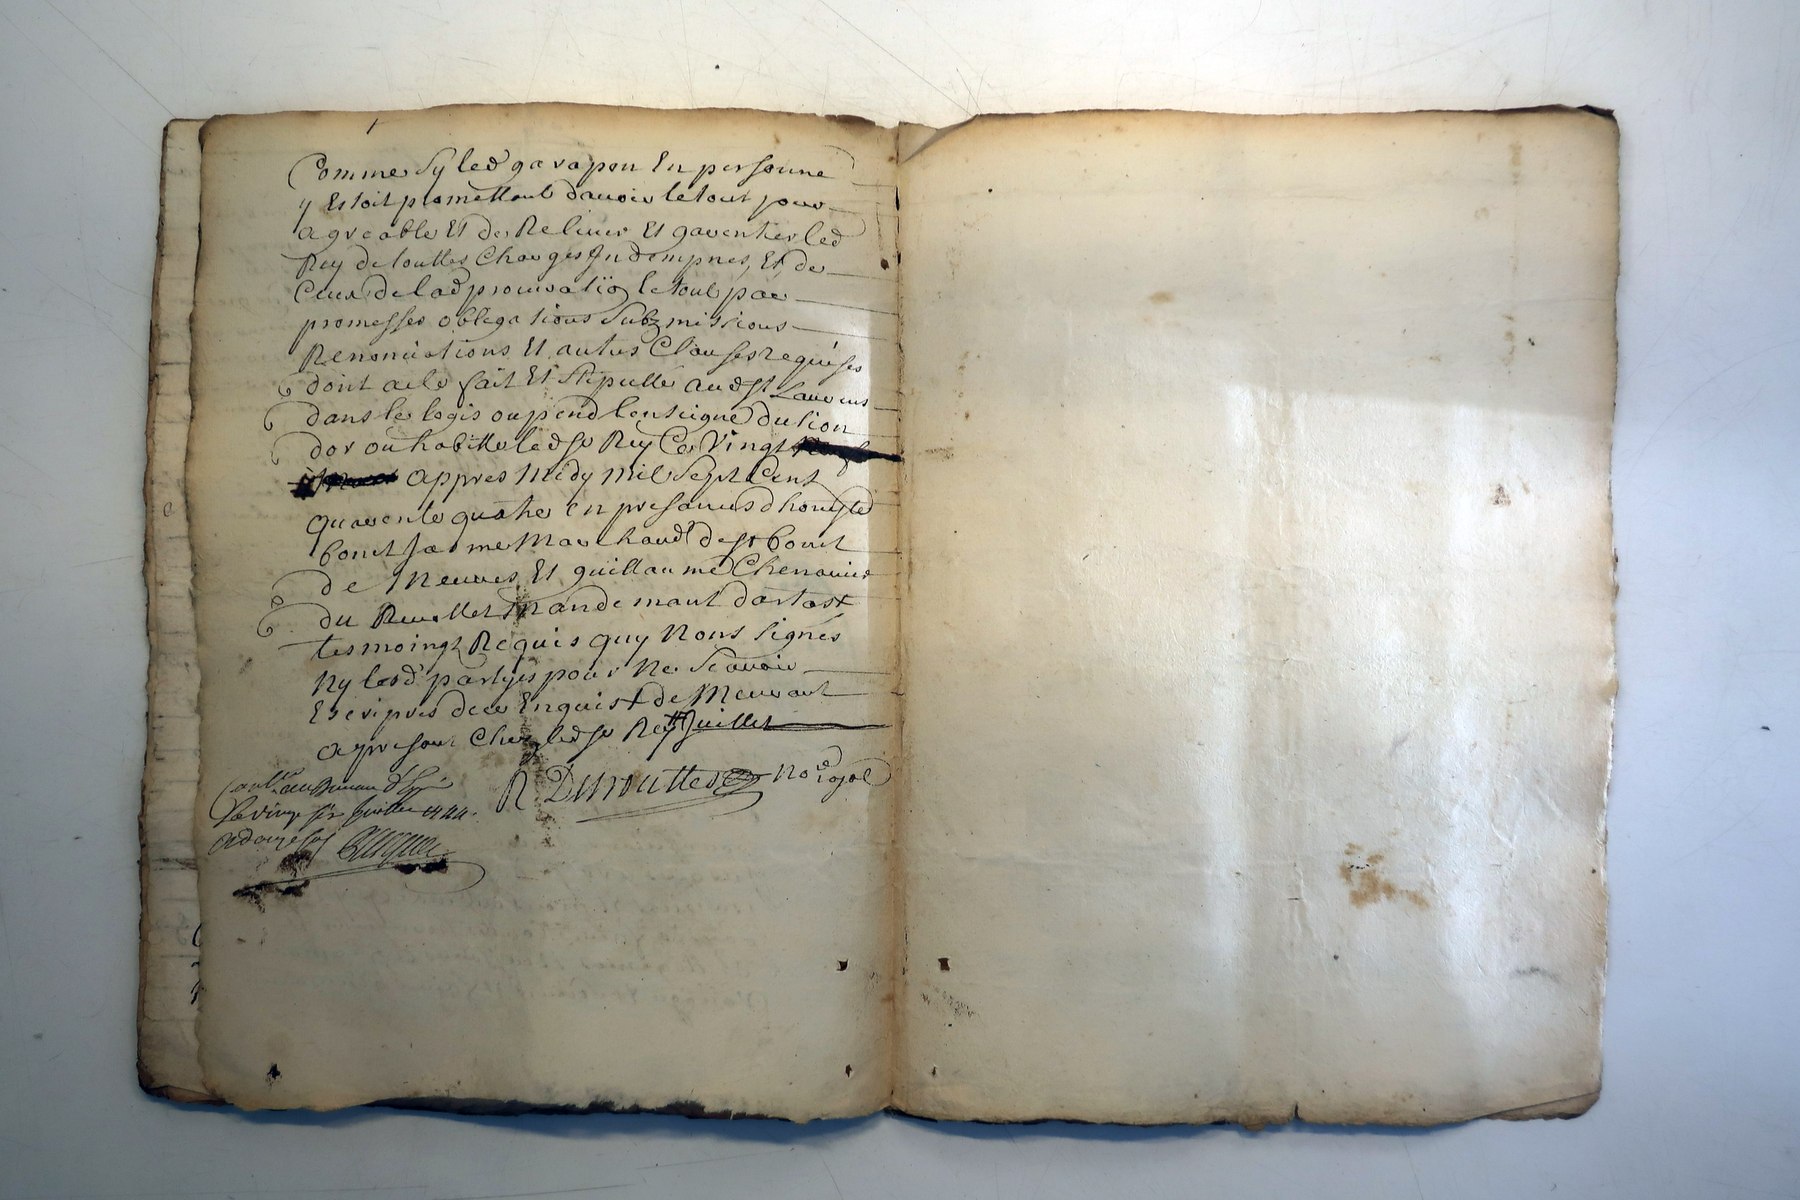 Comme Sy led gavapon En personne
y Estoit promettant davoir le tout pour
agreable Et de Relever Et garentir led
Rey de touttes Charges Indempnes, Et de
Ceux de lad procuration le tout par
promesses obligations Submissions
Renonciations Et autres Clauses requises
dont acte fait Et Stipullé aud St Laurens
dans le logis ou pend lenseigne du lion
dor ou habitte led Sr Rey Ce Vingt
appres Midy Mil Sept Cent
quarente quatre en presances dhonneste
bonet Marchand de St bonet
de Et guillaume Chenavier
du Mandemant
tesmoingz Requis quy Nont Signés
Ny lesd partyes pour Ne Scavoir
Enquis de
apresant Chez led Sr Rey Juillet
R Desrouttes Nore royal
Conllé au Bureau
Le vingt six Juillet 1744.